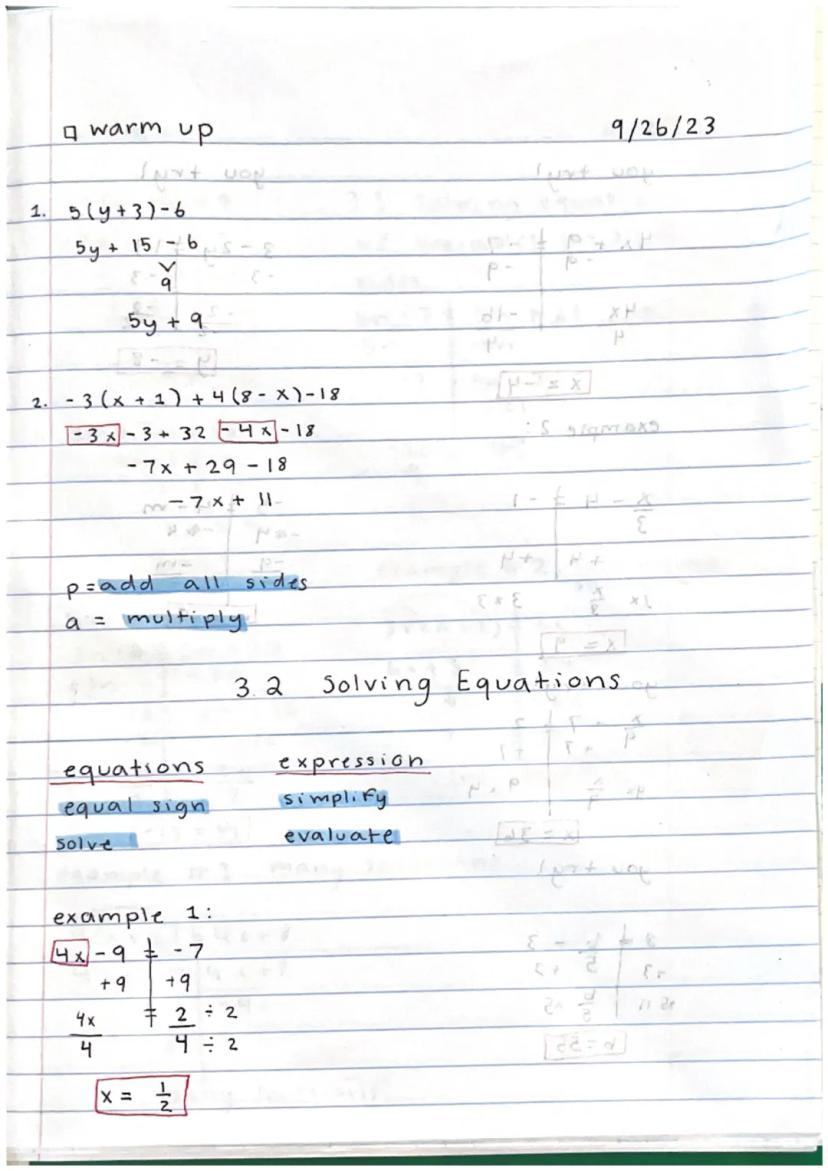 warm up 9/26/23
1. 5(y+3)-6
5y + 15 - 6
9
5y + 9
2. -3(x + 1) + 4(8 - x) - 18
-3x - 3 + 32 - 4x - 18
-7x + 29 - 18
-7x + 11
p = add all sides
a = multiply
3.2 Solving Equations
equations expression
equal sign simplify
solve evaluate
example 1:
4x - 9 = -7
+9 +9
4x/4 = 2/4 ÷ 2/÷ 2
x = 1/2